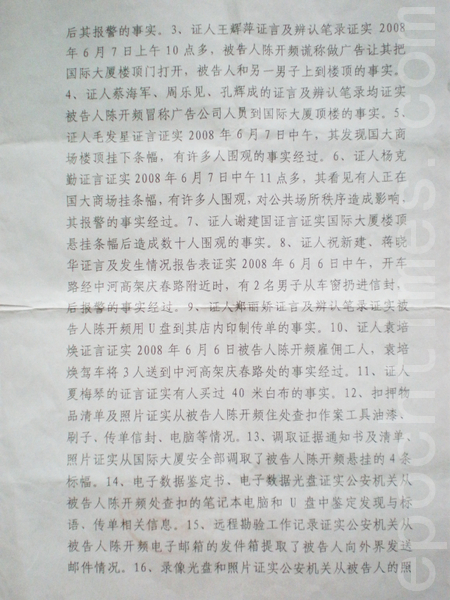 后其报警的事实。3、证人王辉萍证言及辨认笔录证实 2008
年 6 月 7 日上午 10 点多，被告人陈开频谎称做广告让其把
国际大厦楼顶门打开，被告人和另一男子上到楼顶的事实。
4、证人蔡海军、周乐见、孔辉成的证言及辨认笔录均证实
被告人陈开频冒称广告公司人员到国际大厦顶楼的事实。5、
证人毛发星证言证实 2008 年 6 月 7 日中午，其发现国大商
场楼顶挂下条幅，有许多人围观的事实经过。6、证人杨克
勤证言证实 2008 年 6 月 7 日中午 11 点多，其看见有人正在
国大商场挂条幅，有许多人围观，对公共场所秩序造成影响，
其报警的事实经过。7、证人谢建国证言证实国际大厦楼顶
悬挂条幅后造成数十人围观的事实。8、证人祝新建、蒋晓
华证言及发生情况报告表证实 2008 年 6 月 6 日中午，开车
路经中河高架庆春路附近时，有 2 名男子从车窗扔进信封，
后报警的事实经过。9、证人郑丽娇证言及辨认笔录证实被
告人陈开频用 U 盘到其店内印制传单的事实。10、证人袁培
焕证言证实 2008 年 6 月 6 日被告人陈开频雇佣工人，袁培
焕驾车将 3 人送到中河高架庆春路处的事实经过。11、证人
夏梅琴的证言证实有人买过 40 米白布的事实。12、扣押物
品清单及照片证实从被告人陈开频住处查扣作案工具油漆、
刷子、传单信封、电脑等情况。13、调取证据通知书及清单、
照片证实从国际大厦安全部调取了被告人陈开频悬挂的 4 条
标幅。14、电子数据鉴定书、电子数据光盘证实公安机关从
被告人陈开频处查扣的笔记本电脑和 U 盘中鉴定发现与标
语、传单相关信息。15、远程勘验工作记录证实公安机关从
被告人陈开频电子邮箱的发件箱提取了被告人向外界发送
邮件情况。16、录像光盘和照片证实公安机关从被告人的照
epochtimes.com